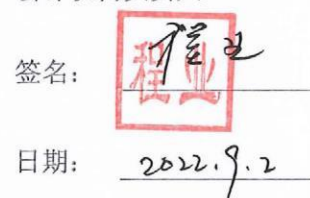 签名：程业
日期：2022.9.2